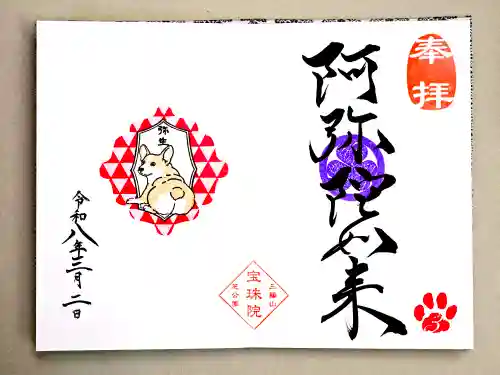 奉拝
阿弥陀如来
弥生
三縁山
宝珠院
芝公園
令和八年三月二日